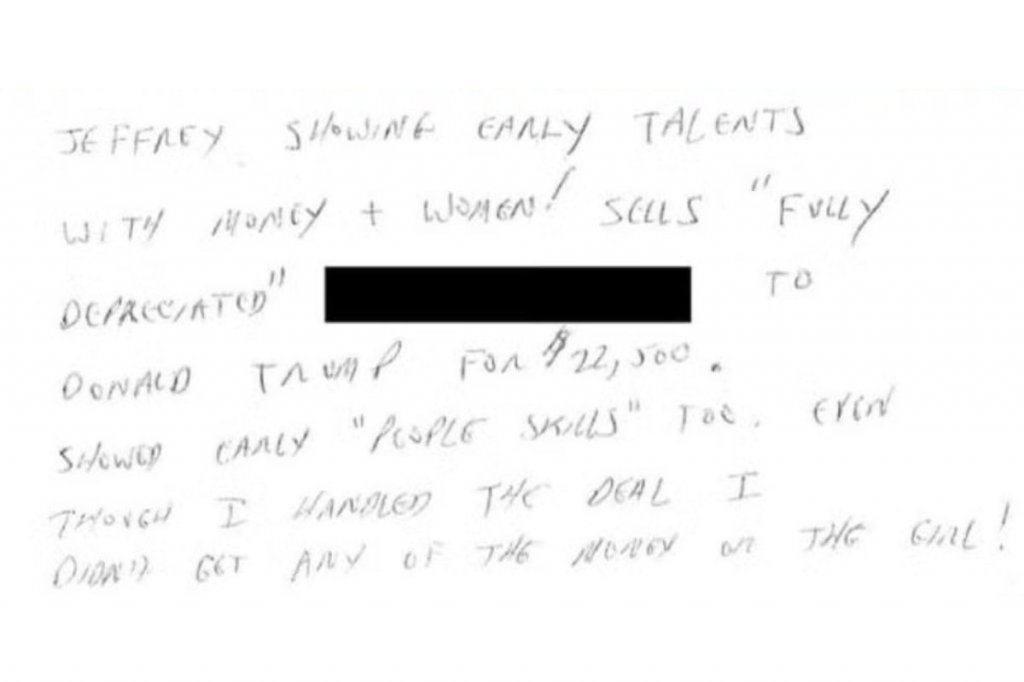 JEFFREY SHOWING EARLY TALENTS
WITH MONEY + WOMEN! SELLS "FULLY
DEPRECIATED" TO
DONALD TRUMP FOR $22,500.
SHOWED EARLY "PEOPLE SKILLS" TOO. EVEN
THOUGH I HANDLED THE DEAL I
DIDN'T GET ANY OF THE MONEY OR THE GIRL!